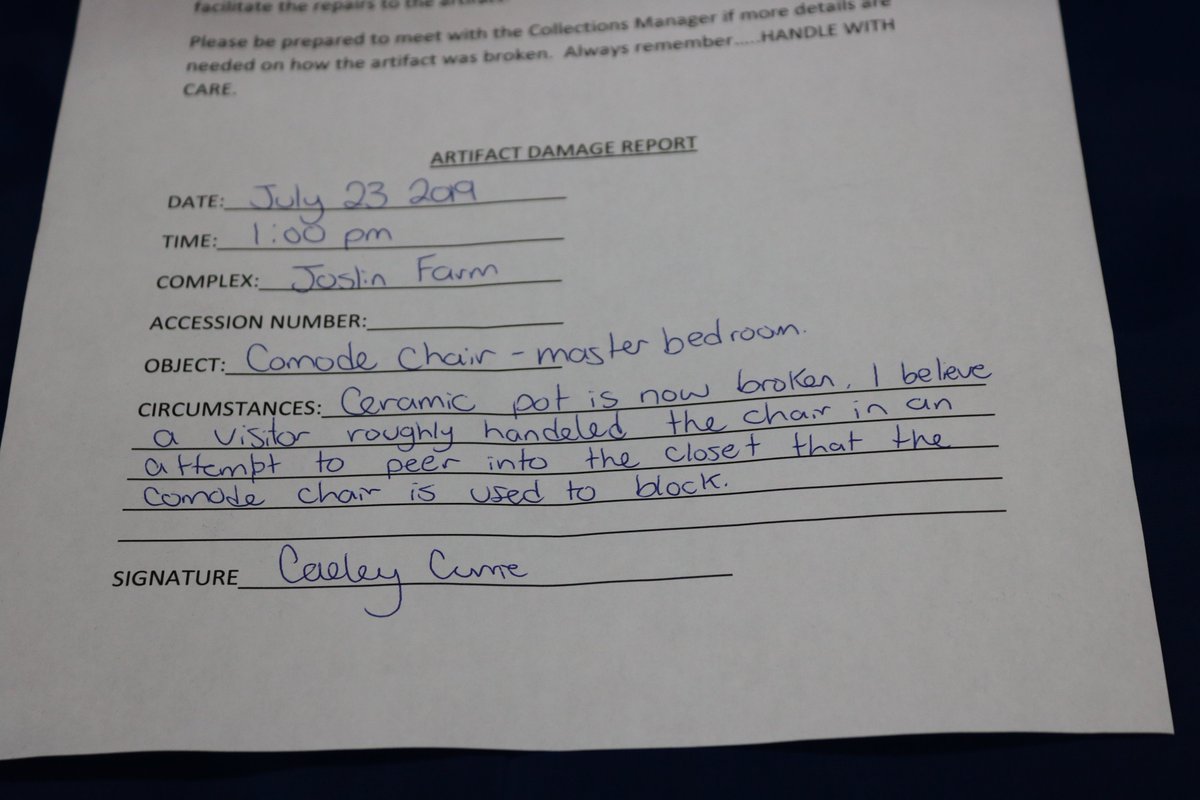 facilitate the repairs to the artifact.
Please be prepared to meet with the Collections Manager if more details are
needed on how the artifact was broken. Always remember......HANDLE WITH
CARE.
ARTIFACT DAMAGE REPORT
DATE: July 23 2019
TIME: 1:00 pm
COMPLEX: Joslin Farm
ACCESSION NUMBER:
OBJECT: Comode Chair - master bedroom.
CIRCUMSTANCES: Ceramic pot is now broken. I believe
a visitor roughly handeled the chair in an
attempt to peer into the closet that the
comode chair is used to block.
SIGNATURE